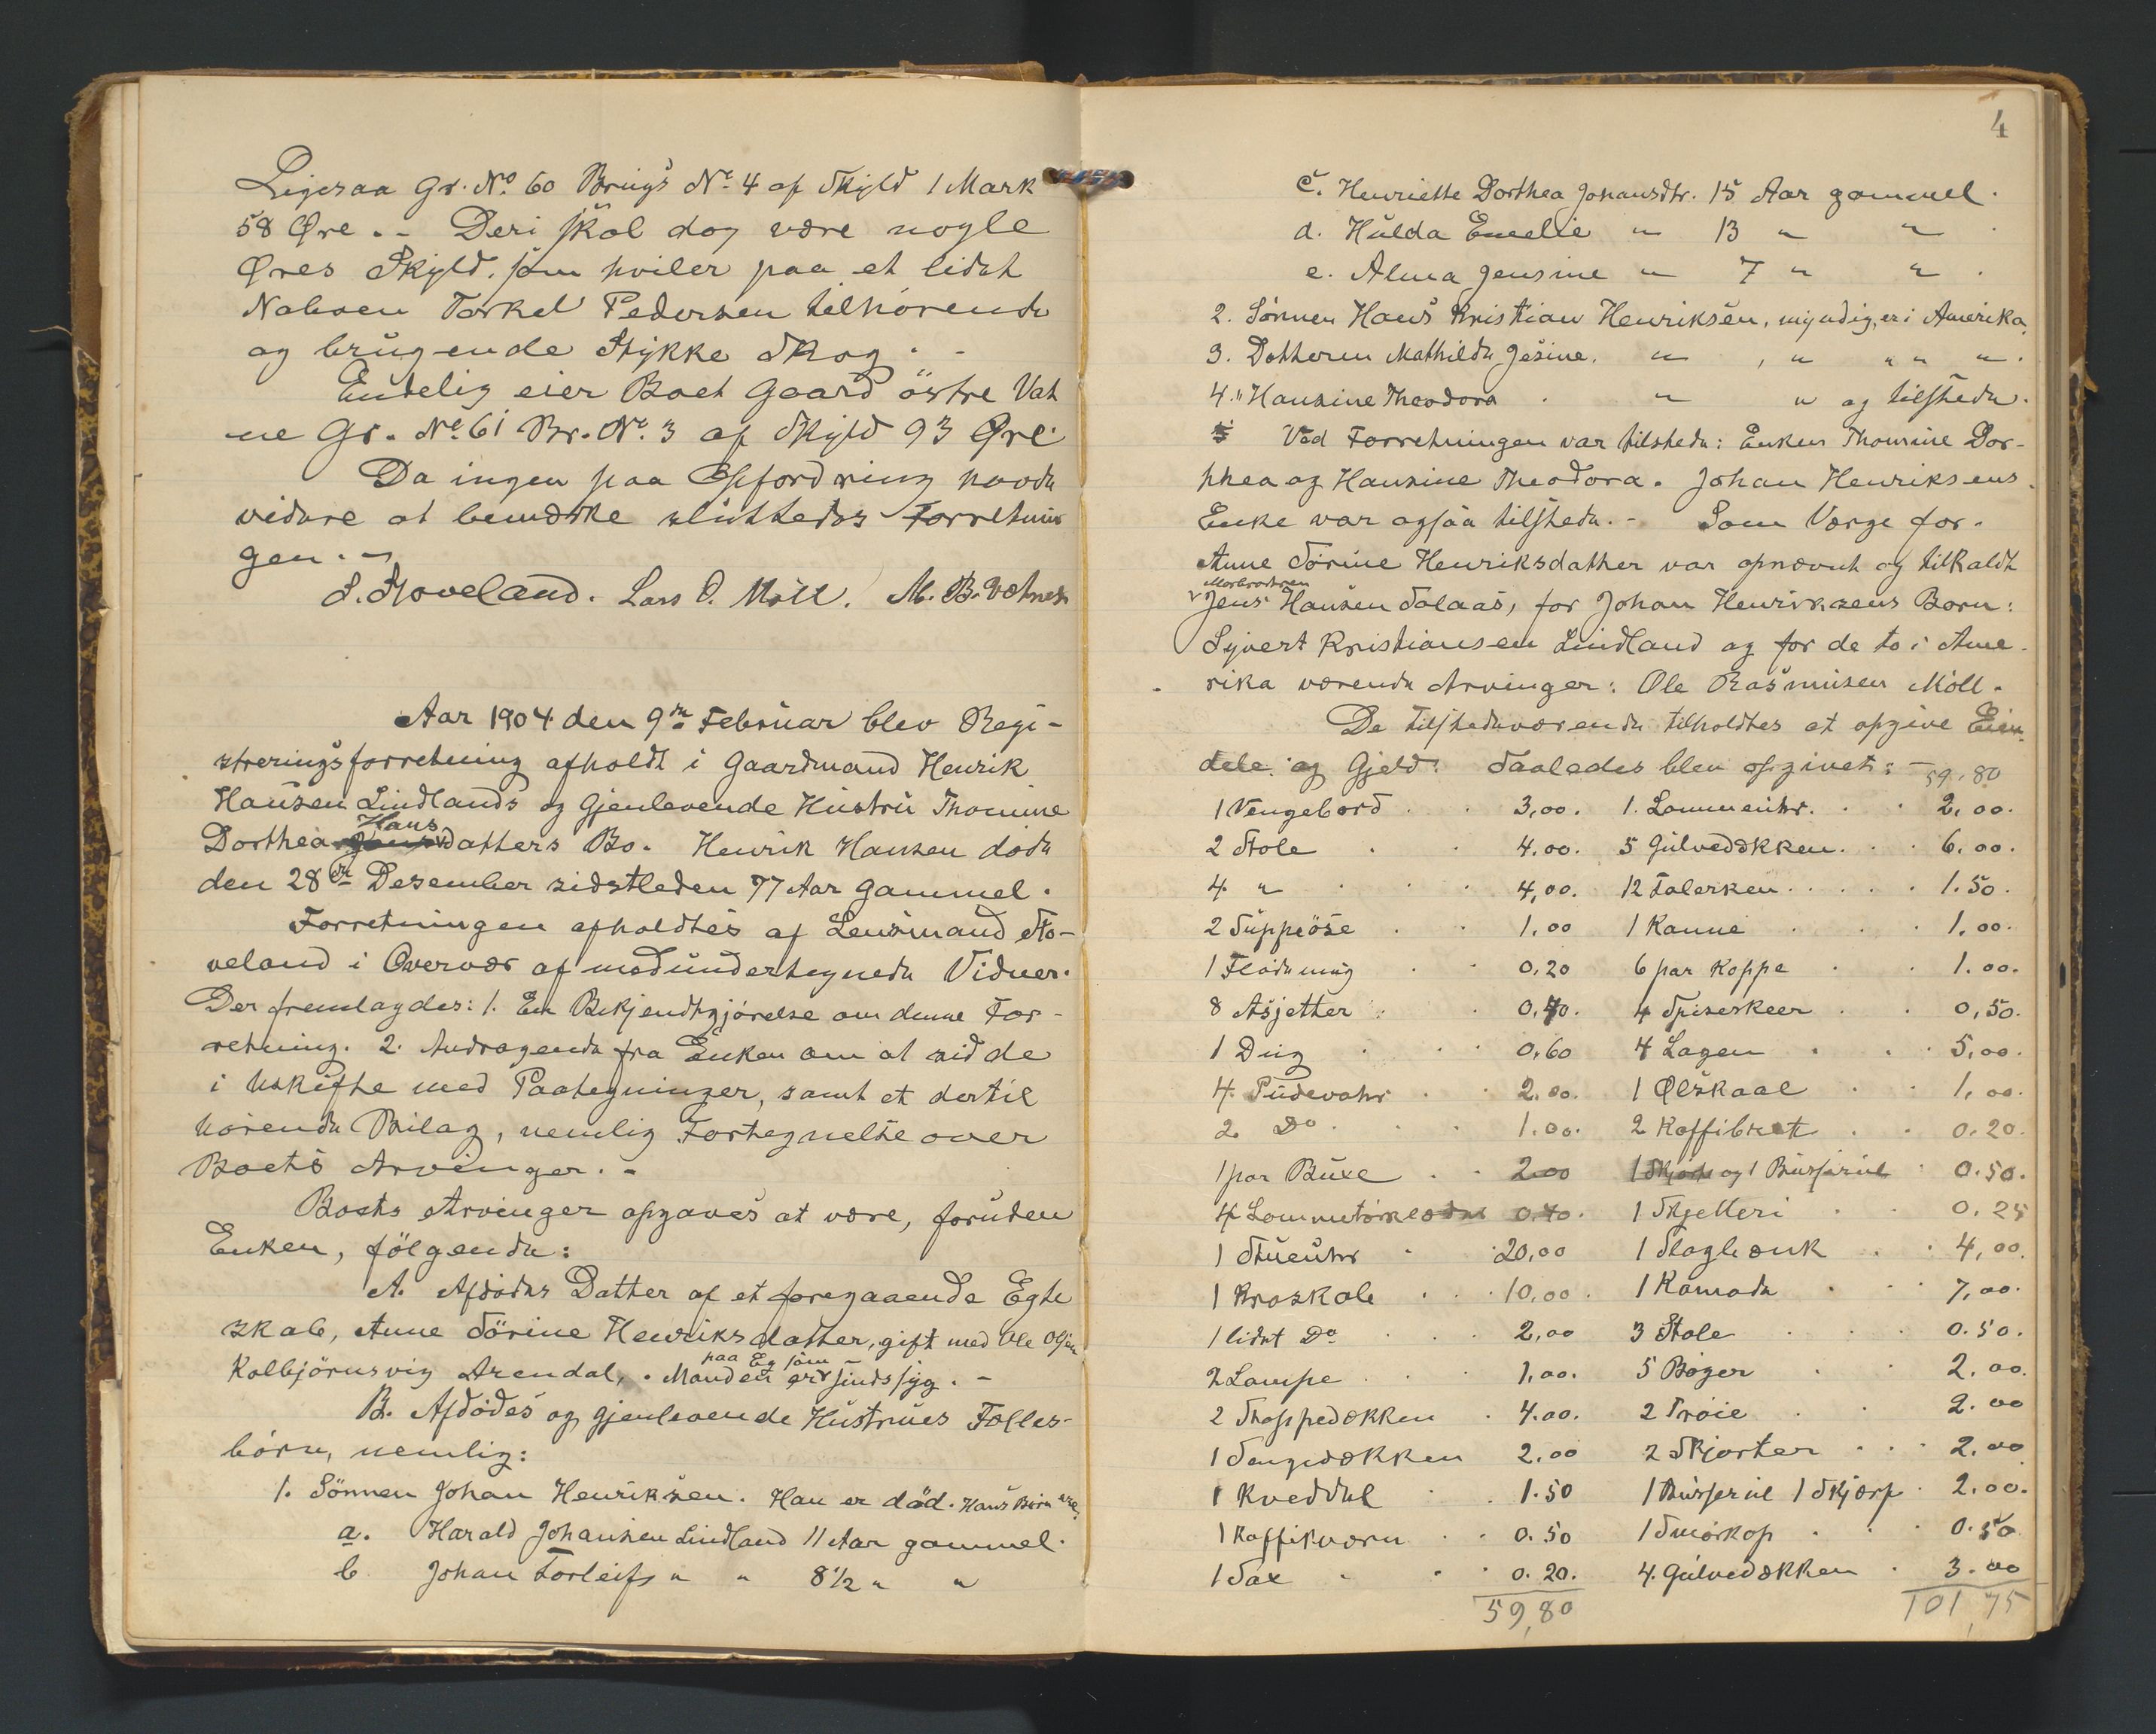 Ligesaa Gr. No. 60 Brugs No. 4 af Skyld 1 Mark
58 Øre. - Deri skal dog være nogle
Øres Skyld. som hviler paa et lidet
Naboen Torkel Pedersen tilhörende
og brugende Stykke Skog. -
Endelig eier Boet Gaard östre Vat
ne Gr. No. 61 Br. No. 3 af Skyld 93 Øre.
Da ingen paa Opfordring havde
videre at bemærke sluttedes Forretnin
gen. -
S. Stoveland. Lars O. Möll. M. B. Vatnes
Aar 1904 den 9de Februar blev Regi-
streringsforretning afholdt i Gaardmand Henrik
Hansen Lindlands og gjenlevende Hustru Thomine
Dorthea Hansdatters Bo. Henrik Hansen döde
den 28de Desember sidstleden 77 Aar gammel.
Forretningen afholdtes af Lensmand Sto-
veland i Overvær af medundertegnede Vidner.
Der fremlagdes: 1. En Bekjendtgjörelse om denne For-
retning. 2. Andragende fra Enken om at sidde
i Uskifte med Paategninger, samt et dertil
hörende Bilag, nemlig Fortegnelse over
Boets Arvinger. -
Boets Arvinger opgaves at være, foruden
Enken, fölgende:
A. Afdödes Datter af et foregaaende Egte
skab, Anne Sörine Henriksdatter, gift med Ole Olsen
Kolbjörnsvig Arendal, . Manden er paa Eg som sindssyg. -
B. Afdödes og gjenlevende Hustrues Fælles-
börn, nemlig:
1. Sönnen Johan Henriksen. Han er död. Hans Börn ere,
a. Harald Johansen Lindland 11 Aar gammel.
b Johan Torleifs " " 8 1/2 " "
4
c. Henriette Dorthea Johansdtr. 15 Aar gammel.
d. Hulda Emelie " 13 " " .
e. Alma Jensine " 7 " " .
2. Sönnen Hans Kristian Henriksen, myndig, er i Amerika.
3. Datteren Mathilde Jesine, " , " " " " .
4. " Hansine Theodora . " " og tilstede.
Ved Forretningen var tilstede: Enken Thomine Dor-
thea og Hansine Theodora. Johan Henriksens
Enke var ogsaa tilstede. - Som Værge for
Anne Sörine Henriksdatter var opnævnt og tilkaldt
Morbroderen
Jens Hansen Salaas, for Johan Henriksens Born:
Syvert Kristiansen Lindland og for de to i Ame-
rika værende Arvinger: Ole Rasmusen Möll.
De tilstedeværende tilholdtes at opgive Eien-
dele og Gjeld: Saaledes blev opgivet: - 59,80
1 Vengebord . . 3,00. 1. Lommeuhr. . . 2,00.
2 Stole . . 4.00. 5 Gulvedækken. . . 6.00.
4 " . . . 4,00. 12 Talerken . . . . 1.50.
2 Suppeöse . . 1.00 1 Kanne . . . 1.00.
1 Flödemug . . 0.20 6 par Koppe . . 1.00.
8 Asjetter . . 0.70. 4 Spiseskeer . . 0,50.
1 Dug . . . 0.60 4 Lagen . . . 5,00.
4 Pudevahr . . 2.00. 1 Ølskaal . . 1,00.
2 Do . . . 1.00. 2 Kaffibret . . 0.20.
1 par Buxe . . 2.00 1 og 1 Busserul . 0.50.
4 Lommetörklæder 0.40. 1 Skjelleri . . 0.25
1 Stueuhr . 20,00 1 Slagbænk . . 4,00.
1 Kraskale . . . 10,00. 1 Komode . . . 7,00.
1 lidet Do . . . 2,00 3 Stole . . . 0.50.
2 Lampe . . . 1,00. 5 Böger . . 2.00.
2 Stoppedækken . 4.00. 2 Tröie . . 2.00
1 Sengedækken 2.00 2 Skjorter . . . 2.00
1 Kveddel . . 1.50 1 Busserul 1 Skjærp . 2.00.
1 Kaffikværn . . 0.50 1 Smörkop . . . 0.50
1 Sax . . . 0.20. 4. Gulvedækken . 3.00
59,80 101,75